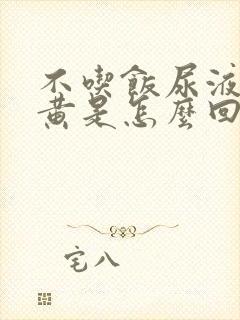 不喫飯尿液
黃是怎麼回
宅八